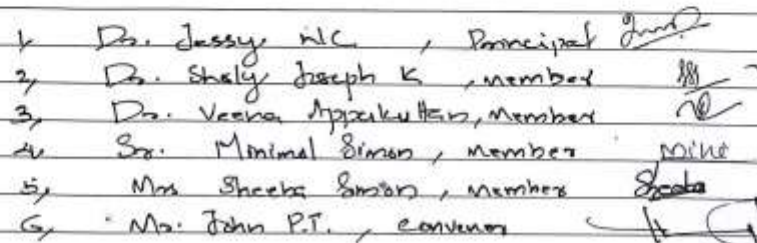 1, Dr. Jessy N C , Principal
2, Dr. Shaly Joseph K , member
3, Dr. Veena Appukuttan, Member
4, Sr. Minimol Simon , member Mini
5, Mrs Sheeba Simon , member Sheeba
6, Mr. John P.T. , convenor